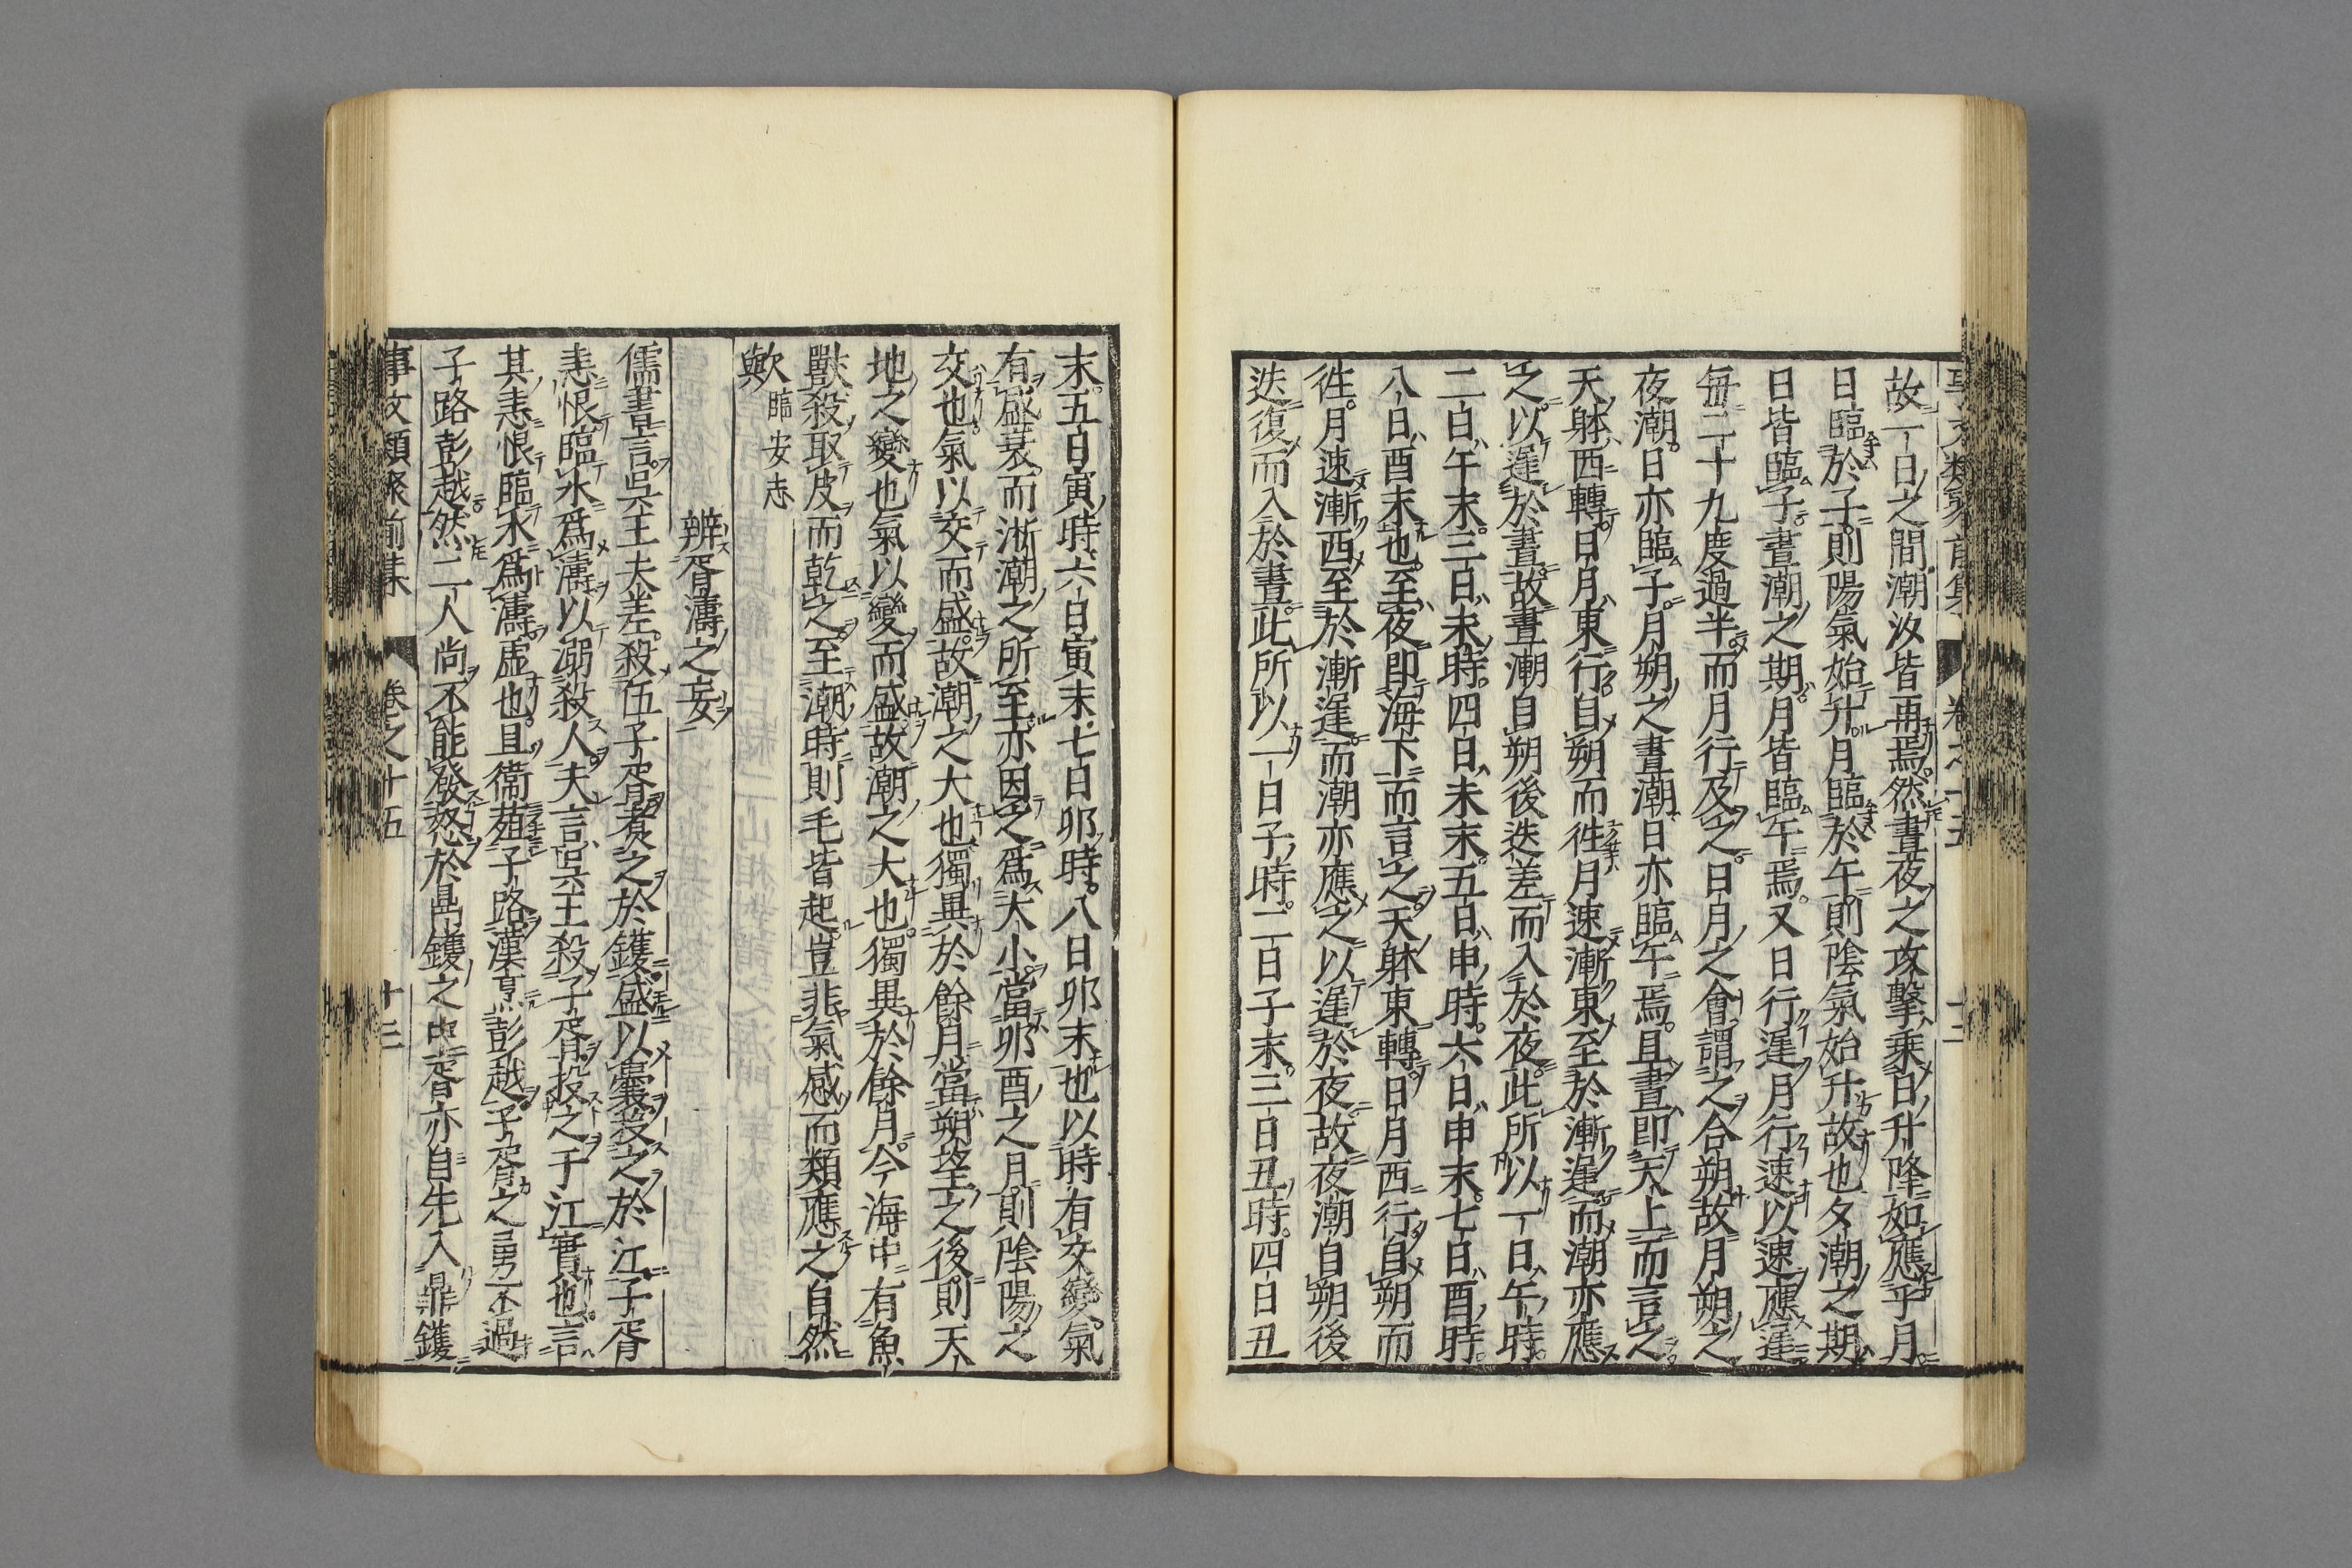 故一日之間潮汐皆再焉然晝夜之攻擊乘日升降如應乎月
日臨於子則陽氣始升月臨於午則陰氣始升故也夕潮之期
日皆臨子晝潮之期月皆臨午焉又日行遲月行速以速應遲
每二十九度過半而月行及之日月之會謂之合朔故月朔之
夜潮日亦臨子月朔之晝潮日亦臨午焉且晝即天上而言之
天躰西轉日月東行自朔而徃月速漸東至於漸遲而潮亦應
之以遲於晝故晝潮自朔後迭差而入於夜此所以一日午時
二日午末三日未時四日未末五日申時六日申末七日酉時
八日酉末也至夜即海下而言之天躰東轉日月西行自朔而
徃月速漸西至於漸遲而潮亦應之以遲於夜故夜潮自朔後
迭復而入於晝此所以一日子時二日子末三日丑時四日丑
末五日寅時六日寅末七日卯時八日卯末也以時有交變氣
有盛衰而淅潮之所至亦因之爲大小當卯酉之月則陰陽之
交也氣以交而盛故潮之大也獨異於餘月當朔望之後則天
地之變也氣以變而盛故潮之大也獨異於餘月今海中有魚
獸殺取皮而乾之至潮時則毛皆起豈非氣感而類應之自然
歟 臨安志
辨胥濤之妄
儒書言吳王夫差殺伍子胥煮之於鑊盛以囊投之於江子胥
恚恨臨水爲濤以溺殺人夫言吳王殺子胥投之于江實也言
其恚恨臨水爲濤虛也且衞菹子路漢烹彭越子胥之勇不過
子路彭越然二人尚不能發怒於鼎鑊之中胥亦自先入鼎鑊
事文類聚前集 卷之十五 十三